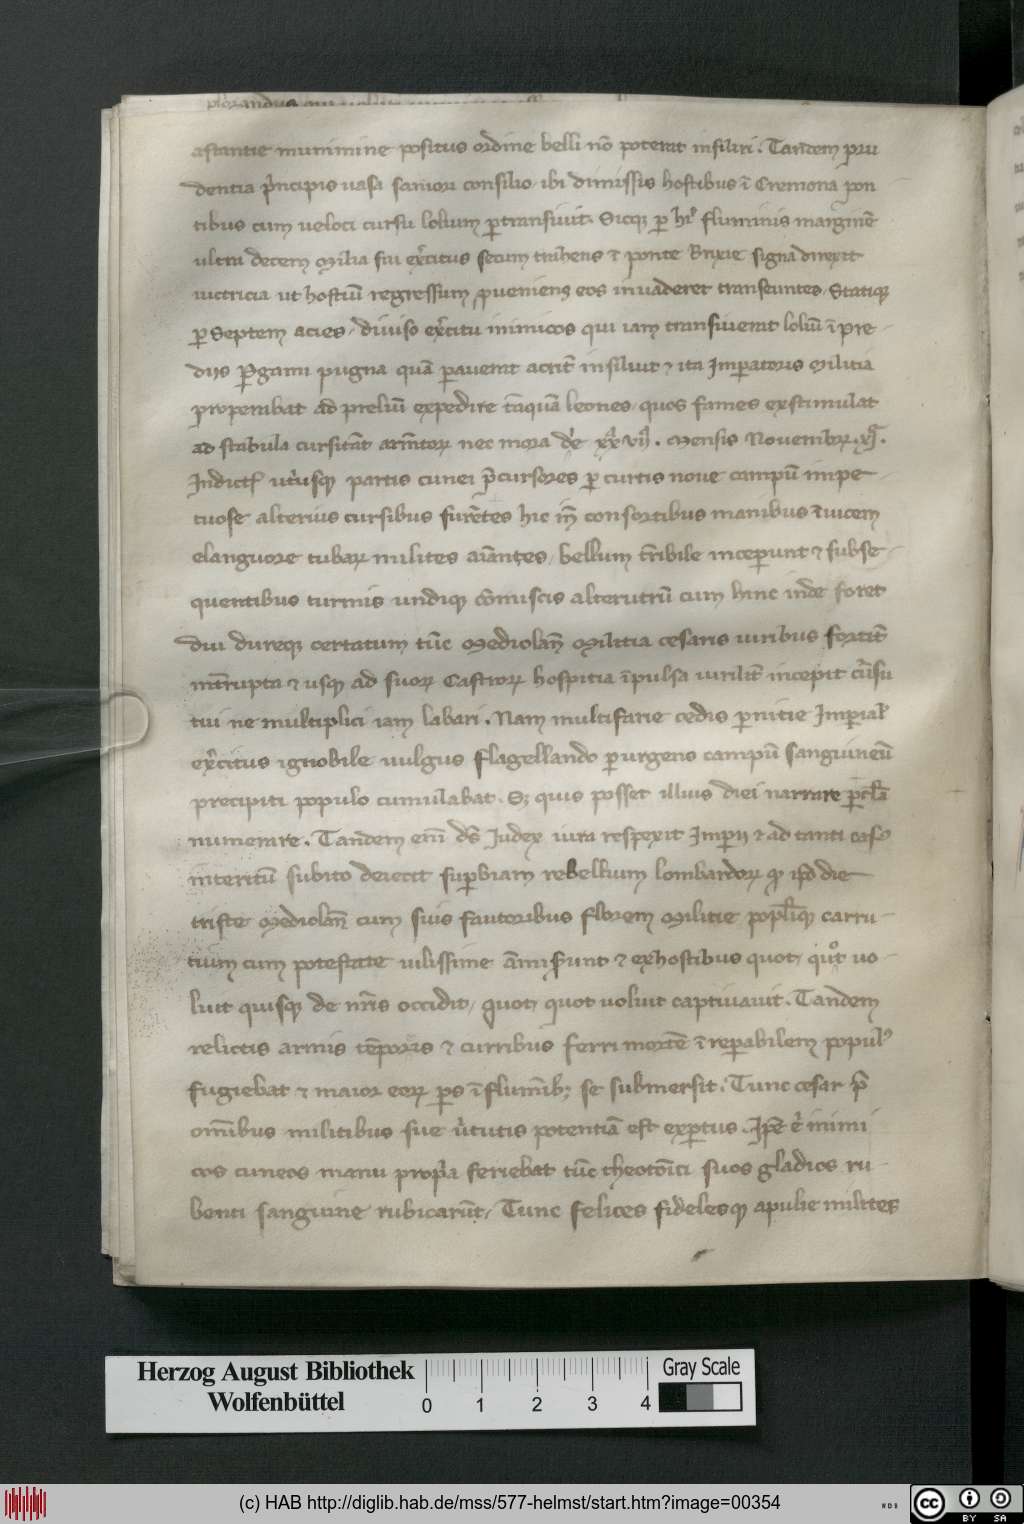 astantie munimine positus ordine belli nō poterat insiliri. Tandem pru
dentia p̉ncipis vasa saniori consilio ibi dimissis hostibus ī Cremona pon
tibus cum veloci cursu lolium ꝑtransiuit. Sicq; ꝑ fluminis marginē
ultra decem Milia sui ex̉citus secum trahens ī ponte signa direxit
victricia ut hostiū regressum ꝓveniens eos invaderet transeuntes. Statiq;
ꝑ Septem acies, diviso ex̉citu inimicos qui iam transiuerat loliū ī pre
diis ꝑgami pugna quā ꝑaverat acrit̄ insiluit ⁊ ita Imꝑatoris Milicia
properabat ad preliū expedire tāquā leones, quos fames exstimulat
ad stabula cursitāt armētoꝝ nec mora die xxvii. Mensis Novembꝝ. xi.
Indict. utiusq; partis cunei p̄cursores ꝑ curtis nove campū impe
tuose alterius cursibus furētes hic īn consortibus manibus īuicem
elanguore tubaꝝ milites aīantes, bellum t̄ribile inceꝑunt ⁊ subse
quentibus turmis undiq; cōmiscis alterutrū cum hinc inde foret
diu dureq; certatum tūc Mediolan̄ Militia cesaris viribus fortit̄
int̄rupta ⁊ usq; ad suoꝝ Castroꝝ hospitia īpulsa virilit̄ incepit
tui ne multiplici iam labari. Nam multifarie cedis ꝑnitie Imꝑial
ex̉citus ignobile vulgus flagellando ꝑurgens campū sanguineū
precipiti populo cumulabat. S; quis posset illius diei narrare
numerare. Tandem em̄ ds̄ Judex iura respexit Imꝑii ⁊ ad tanti casꝰ
interitū subito deiecit suꝑbiam rebellium lombardoꝝ ipso die
triste Mediolan̄ cum suis fautoribus florem Militie carru
tium cum potestate vilissime āmiserunt ⁊ ex hostibus quot, vo
luit quisq; de nr̄is occidit, quot, quot voluit captivavit. Tandem
relictis armis tēporis ⁊ curribus ferri mortē īreꝑabilem populꝰ
fugiebat ⁊ maior eoꝝ ꝑs ī flumīb; se submersit. Tunc cesar p̄
om̄ibus militibus sue v̉tutis potentiā est exꝑtus. Iꝑe eỉ inimi
cos cuneos manu propria feriebat tūc theotōici suos gladios ru
benti sanguine rubicarūt, Tunc felices fidelesq; apulie milites
Herzog August Bibliothek
Wolfenbüttel
0 1 2 3 4
Gray Scale
(c) HAB http://diglib.hab.de/mss/577-helmst/start.htm?image=00354
WDB
cc BY SA